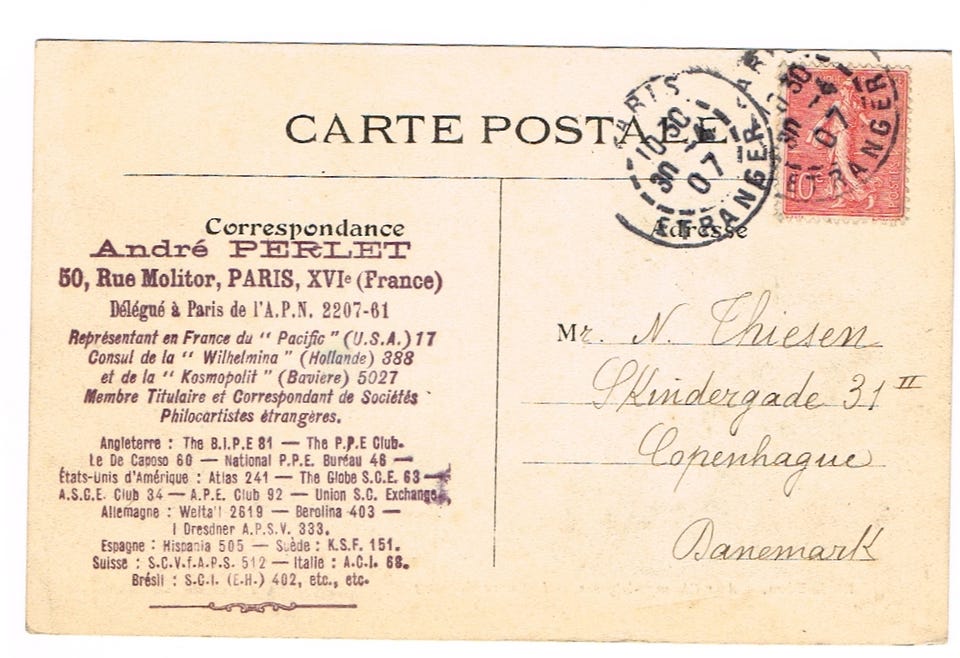 CARTE POSTALE
PARIS
10 30
30
07
ETRANGER
PARIS
10 30
30
07
ETRANGER
10
Correspondance
Adresse
André PERLET
50, Rue Molitor, PARIS, XVIe (France)
Délégué à Paris de l'A.P.N. 2207-61
Représentant en France du "Pacific" (U.S.A.) 17
Consul de la "Wilhelmina" (Hollande) 388
et de la "Kosmopolit" (Bavière) 5027
Membre Titulaire et Correspondant de Sociétés
Philocartistes étrangères.
Angleterre : The B.I.P.E 81 — The P.P.E Club.
Le De Caposo 60 — National P.P.E. Buréau 46 —
États-Unis d'Amérique : Atlas 241 — The Globe S.C.E. 63 —
A.S.C.E. Club 34 — A.P.E. Club 92 — Union S.C. Exchange
Allemagne : Welta'l 2619 — Berolina 403 —
I Dresdner A.P.S.V. 333.
Espagne : Hispania 505 — Suède : K.S.F. 151.
Suisse : S.C.V.f.A.P.S. 512 — Italie : A.C.I. 68.
Brésil : S.C.I. (E.H.) 402, etc., etc.
Mr. N. Thiesen
Skindergade 31 II
Copenhague
Danemark